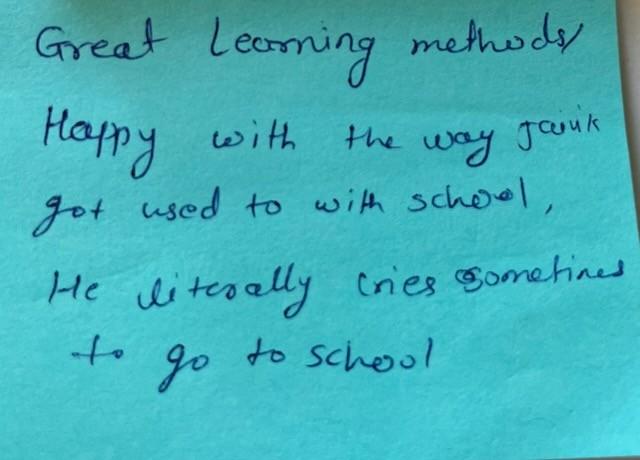 Great Learning methods/
Happy with the way
got used to with school,
He literally cries sometimes
to go to school